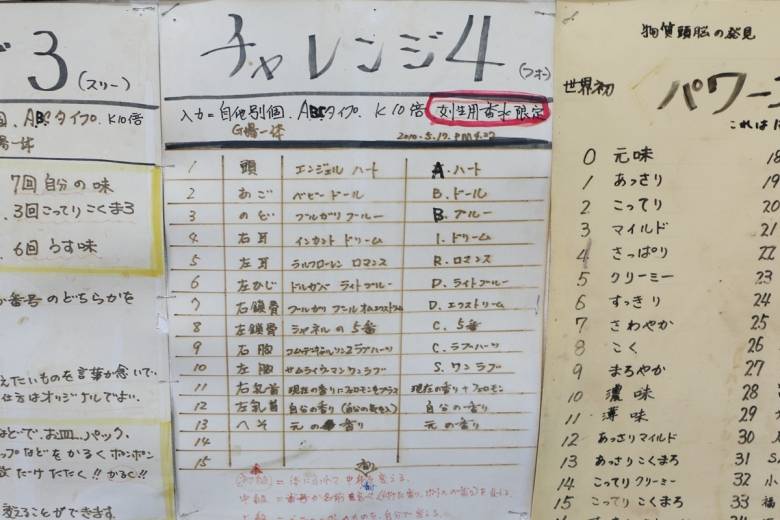 3
(スリー)
ABCタイプ. K10倍
場一体
7回 自分の味
3回こってりこくまろ
6回 うす味
番号のどちらかを
えたいものを言葉か思いで、
仕方はオリジナルでよい。
などで、お皿、パック、
ップなどをかるくポンポン
数だけたたく!!かるく!!
変ることができます。
チャレンジ4
(フォー)
入力=自他別個. ABCタイプ. K10倍 女性用香水限定
G場一体 2010.5.17. PM
1 頭 エンジェル ハート A. ハート
2 あご ベビー ドール B. ドール
3 のど ブルガリ ブルー B. ブルー
4 右耳 インカント ドリーム I. ドリーム
5 左耳 ラルフローレン ロマンス R. ロマンス
6 左ひじ ドルガバ ライトブルー D. ライトブルー
7 右鎖骨 D. エクストリーム
8 左鎖骨 シャネルの 5番 C. 5番
9 右胸 C. ラブハーツ
10 左胸 サムライウーマンワンラブ S. ワン ラブ
11 右乳首 現在の香りにフェロモンをプラス 現在の香り+フェロモン
12 左乳首 自分の香り 自分の香り
13 へそ 元の香り 元の香り
14
15
物質頭脳の発見
世界初
パワー
これは
0 元味 18
1 あっさり 19
2 こってり 20
3 マイルド 21
4 さっぱり 22
5 クリーミー 23
6 すっきり 24
7 さわやか 25
8 こく 26
9 まろやか 27
10 濃味 28
11 薄味 29
12 あっさりマイルド 30
13 あっさりこくまろ 31
14 こってりクリーミー 32 小
15 こってりこくまろ 33